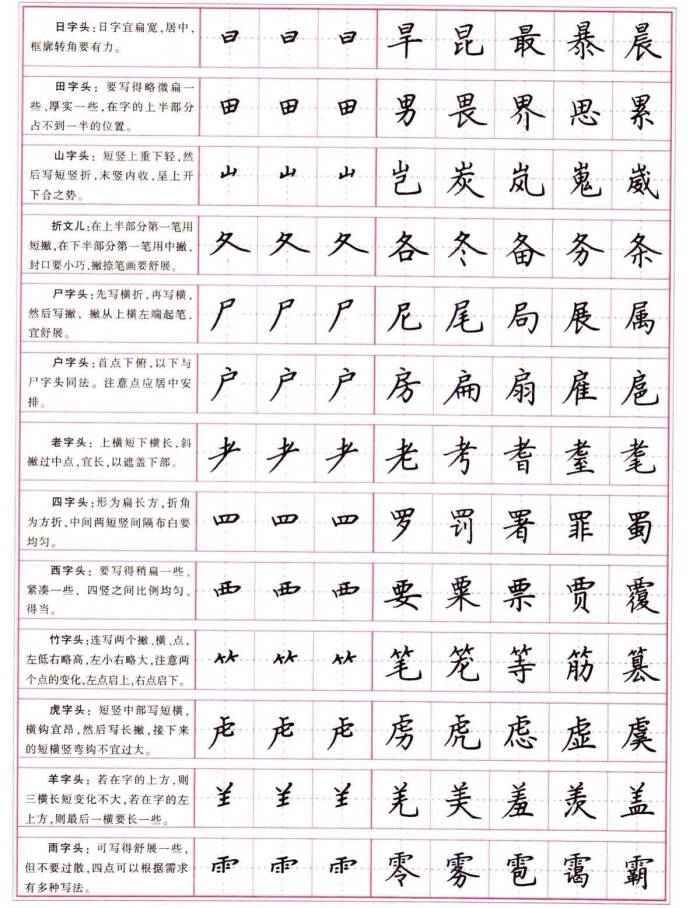 日字头:日字宜扁宽,居中,
框廓转角要有力。
日 日 日 旱 昆 最 暴 晨
田字头:要写得略微扁一
些、厚实一些,在字的上半部分
占不到一半的位置。
田 田 田 男 畏 界 思 累
山字头:短竖上重下轻,然
后写短竖折,末竖内收,呈上开
下合之势。
山 山 山 岂 炭 岚 嵬 崴
折文儿:在上半部分第一笔用
短撇,在下半部分第一笔用中撇,
封口要小巧,撇捺笔画要舒展。
夂 夂 夂 各 冬 备 务 条
尸字头:先写横折,再写横,
然后写撇、撇从上横左端起笔,
宜舒展。
尸 尸 尸 尼 尾 局 展 属
户字头:首点下俯,以下与
尸字头同法。注意点应居中安
排。
户 户 户 房 扁 扇 雇 扈
老字头:上横短下横长,斜
撇过中点,宜长,以遮盖下部。
耂 耂 耂 老 考 耆 耋 耄
四字头:形为扁长方,折角
为方折,中间两短竖间隔布白要
均匀。
罒 罒 罒 罗 罚 署 罪 蜀
西字头:要写得稍扁一些、
紧凑一些,四竖之间比例均匀、
得当。
覀 覀 覀 要 粟 票 贾 覆
竹字头:连写两个撇、横、点,
左低右略高,左小右略大,注意两
个点的变化,左点启上,右点启下。
⺮ ⺮ ⺮ 笔 笼 等 筋 篡
虎字头:短竖中部写短横,
横钩宜昂,然后写长撇,接下来
的短横竖弯钩不宜过大。
虍 虍 虍 虏 虎 虑 虚 虞
羊字头:若在字的上方,则
三横长短变化不大,若在字的左
上方,则最后一横要长一些。
⺷ ⺷ ⺷ 羌 美 羞 羡 盖
雨字头:可写得舒展一些,
但不要过散,四点可以根据需求
有多种写法。
⻗ ⻗ ⻗ 零 雾 雹 霭 霸